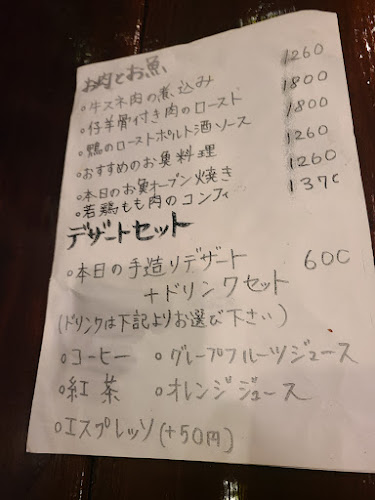 お肉とお魚
・牛スネ肉の煮込み 1260
・仔羊骨付き肉のロースト 1800
・鴨のローストポルト酒ソース 1800
・おすすめのお魚料理 1260
・本日のお魚オーブン焼き 1260
・若鶏もも肉のコンフィ 1370
デザートセット
・本日の手造りデザート 600
+ドリンクセット
(ドリンクは下記よりお選び下さい)
○コーヒー ○グレープフルーツジュース
○紅茶 ○オレンジジュース
○エスプレッソ(+50円)